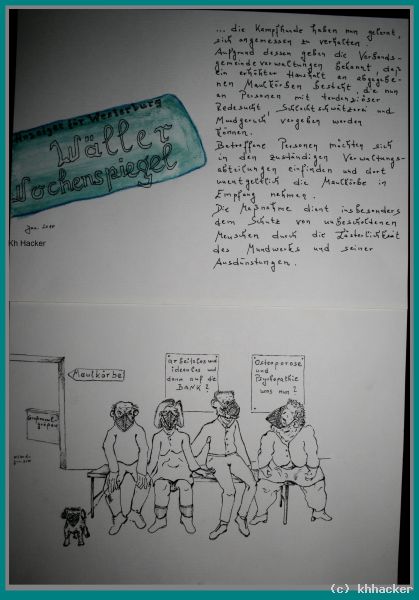 Anzeiger für Westerburg
Wäller
Wochenspiegel
Jan. 2011
Kh Hacker
... die Kampfhunde haben nun gelernt,
sich angemessen zu verhalten.
Aufgrund dessen geben die Verbands-
gemeindeverwaltungen bekannt, daß
ein erhöhter Haushalt an abgegebe-
nen Maulkörben besteht, die nun
an Personen mit tendenziöser
Redesucht, Schlechtschwätzerei und
Mundgeruch vergeben werden
können.
Betroffene Personen möchten sich
in den zuständigen Verwaltungs-
abteilungen einfinden und dort
unentgeltlich die Maulkörbe in
Empfang nehmen.
Die Maßnahme dient insbesonders
dem Schutz von unbescholtenen
Menschen durch die Lästerlichkeit
des Mundwerks und seiner
Ausdünstungen.
Maulkörbe
arbeitslos und
ideenlos und
dann auf die
BANK?
Osteoporose
und
Psychopathie
was nun?
(c) khhacker